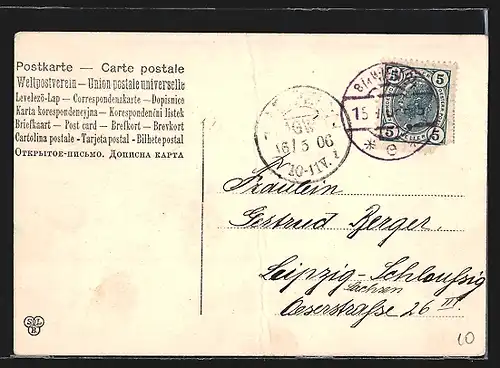 Postkarte — Carte postale
Weltpostverein — Union postale universelle
Levelező-Lap — Correspondenzkarte — Dopisnice
Karta korespondencyjna — Korespondenční lístek
Briefkaart — Post card — Brefkort — Brevkort
Cartolina postale - Tarjeta postal - Bilhete postal
Открытое-письмо. Дописна карта
5 5
5 5
15
* e *
GW
16/5 06
10-11V.
Fräulein
Gertrud Berger,
Leipzig-Schleussig
Sachsen
Oeserstraße 26 III.
10